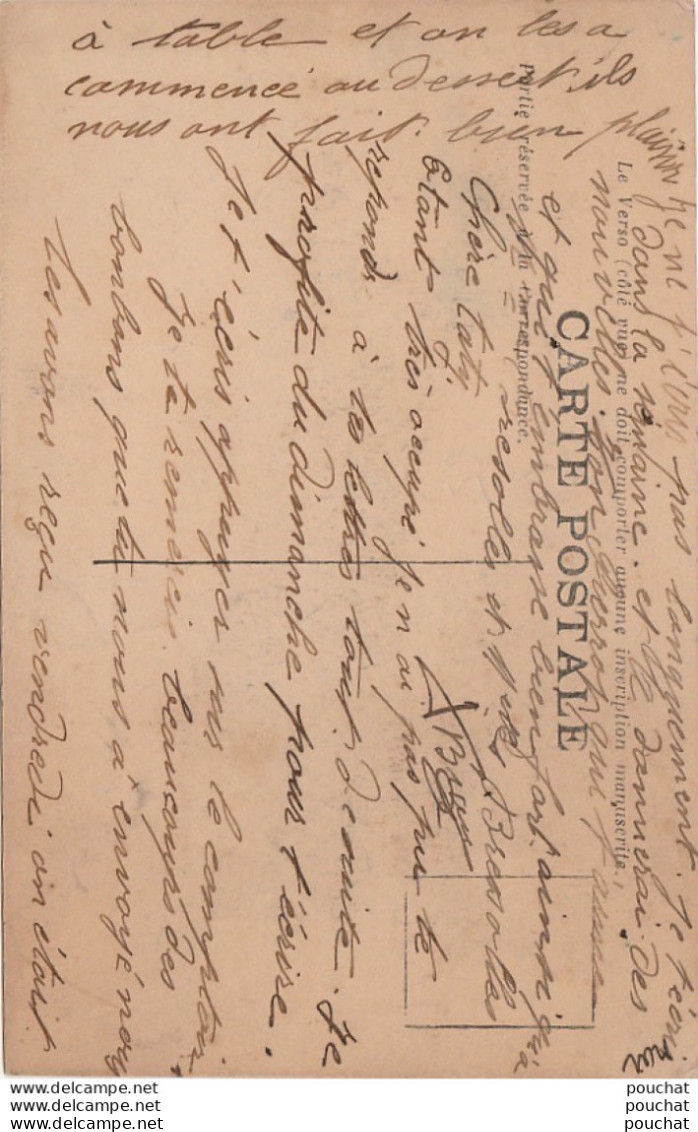 CARTE POSTALE
Le Verso (côté vue) ne doit comporter aucune inscription manuscrite.
Partie réservée à la Correspondance.
Chère taty
Etant très occupé je n'ai pas pu te
repondr à tes lettres tout d'suite. Je
profite du dimanche pour t'écrire.
Je t'écris appuyer sus le comptoir
Je te remercie beaucoups des
bonbons que tu nous a envoyé nous
les avons reçu vendredi on était
à table et on les a
commencé au dessert. ils
nous ont fait bien plaisir
Je ne t'écris pas longuement. Je t'écrirai
dans la semaine. et te donnerai des
nouvelles. Ton Pierrot qui t'aime
et qui t'embrasse bien fort. ainsi qu'à
Bresolles
delcampe.net
delcampe.net
delcampe.net
pouchat
pouchat
pouchat